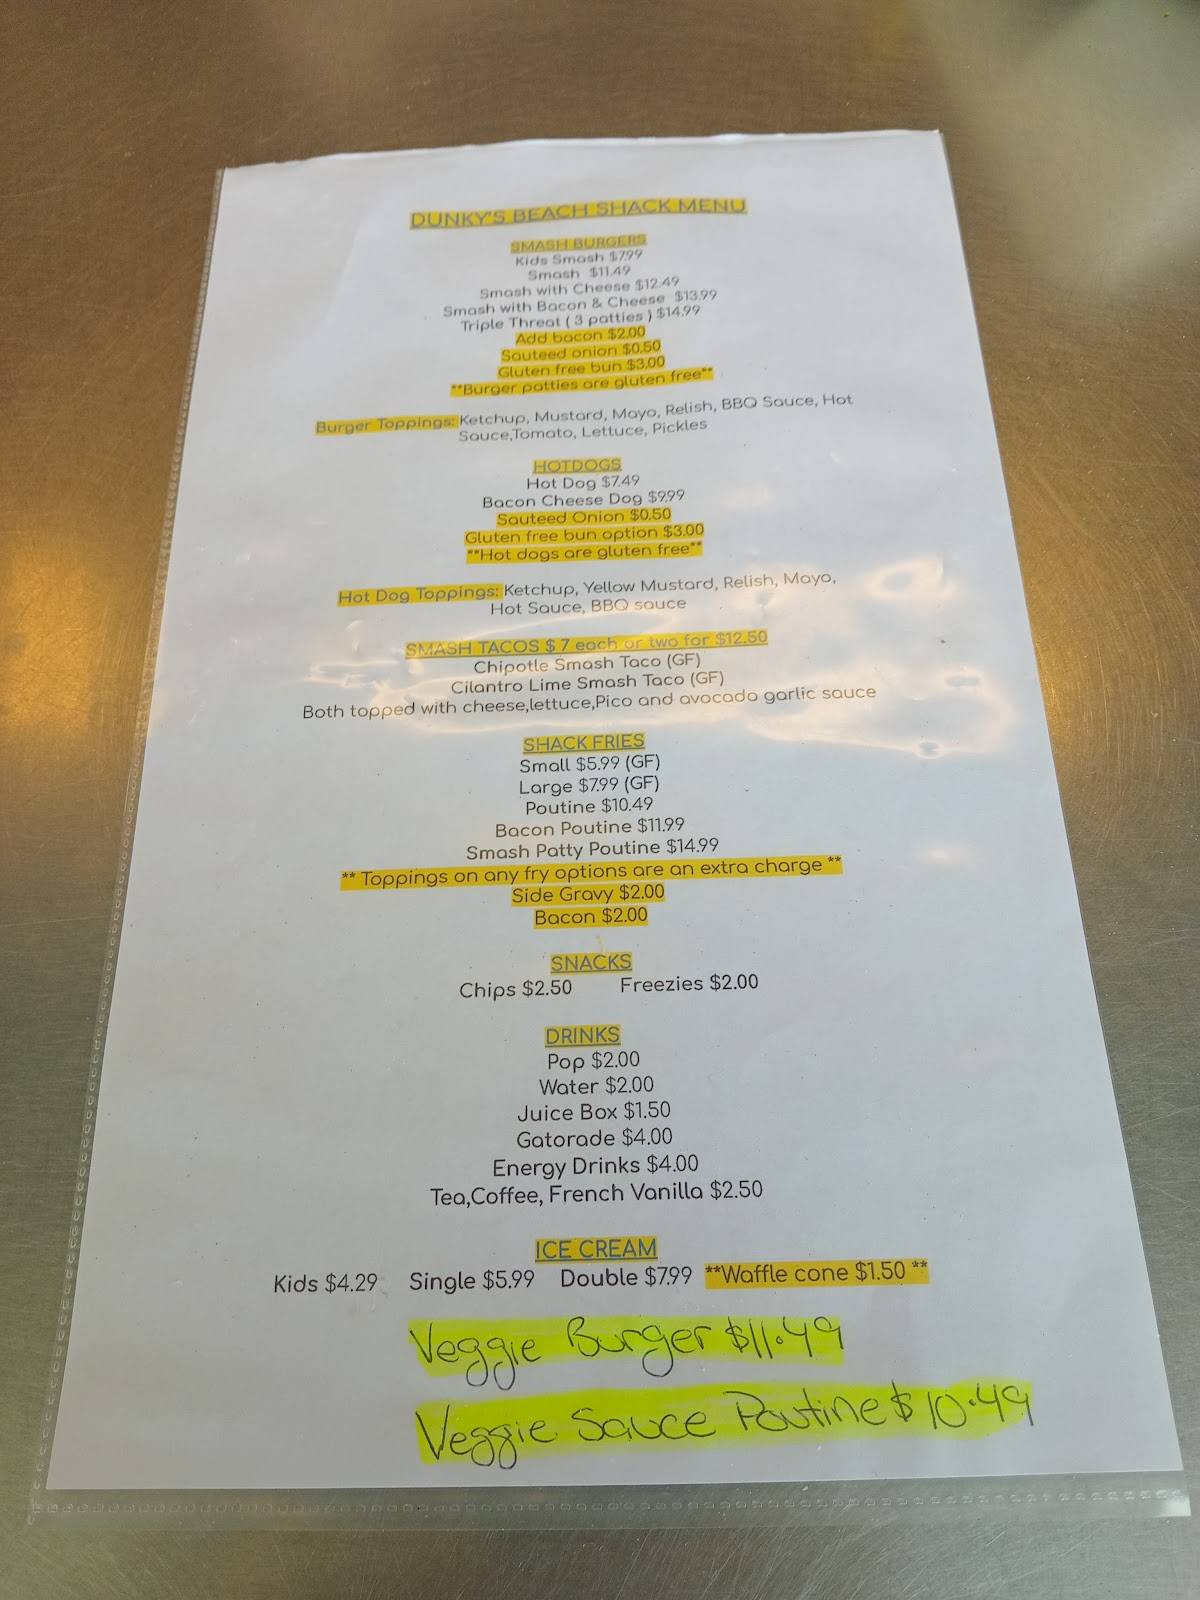 DUNKY'S BEACH SHACK MENU
SMASH BURGERS
Kids Smash $7.99
Smash $11.49
Smash with Cheese $12.49
Smash with Bacon & Cheese $13.99
Triple Threat ( 3 patties ) $14.99
Add bacon $2.00
Sauteed onion $0.50
Gluten free bun $3.00
**Burger patties are gluten free**
Burger Toppings: Ketchup, Mustard, Mayo, Relish, BBQ Sauce, Hot
Sauce,Tomato, Lettuce, Pickles
HOTDOGS
Hot Dog $7.49
Bacon Cheese Dog $9.99
Sauteed Onion $0.50
Gluten free bun option $3.00
**Hot dogs are gluten free**
Hot Dog Toppings: Ketchup, Yellow Mustard, Relish, Mayo,
Hot Sauce, BBQ sauce
SMASH TACOS $ 7 each or two for $12.50
Chipotle Smash Taco (GF)
Cilantro Lime Smash Taco (GF)
Both topped with cheese,lettuce,Pico and avocado garlic sauce
SHACK FRIES
Small $5.99 (GF)
Large $7.99 (GF)
Poutine $10.49
Bacon Poutine $11.99
Smash Patty Poutine $14.99
** Toppings on any fry options are an extra charge **
Side Gravy $2.00
Bacon $2.00
SNACKS
Chips $2.50 Freezies $2.00
DRINKS
Pop $2.00
Water $2.00
Juice Box $1.50
Gatorade $4.00
Energy Drinks $4.00
Tea,Coffee, French Vanilla $2.50
ICE CREAM
Kids $4.29 Single $5.99 Double $7.99 **Waffle cone $1.50 **
Veggie Burger $11.49
Veggie Sauce Poutine $10.49